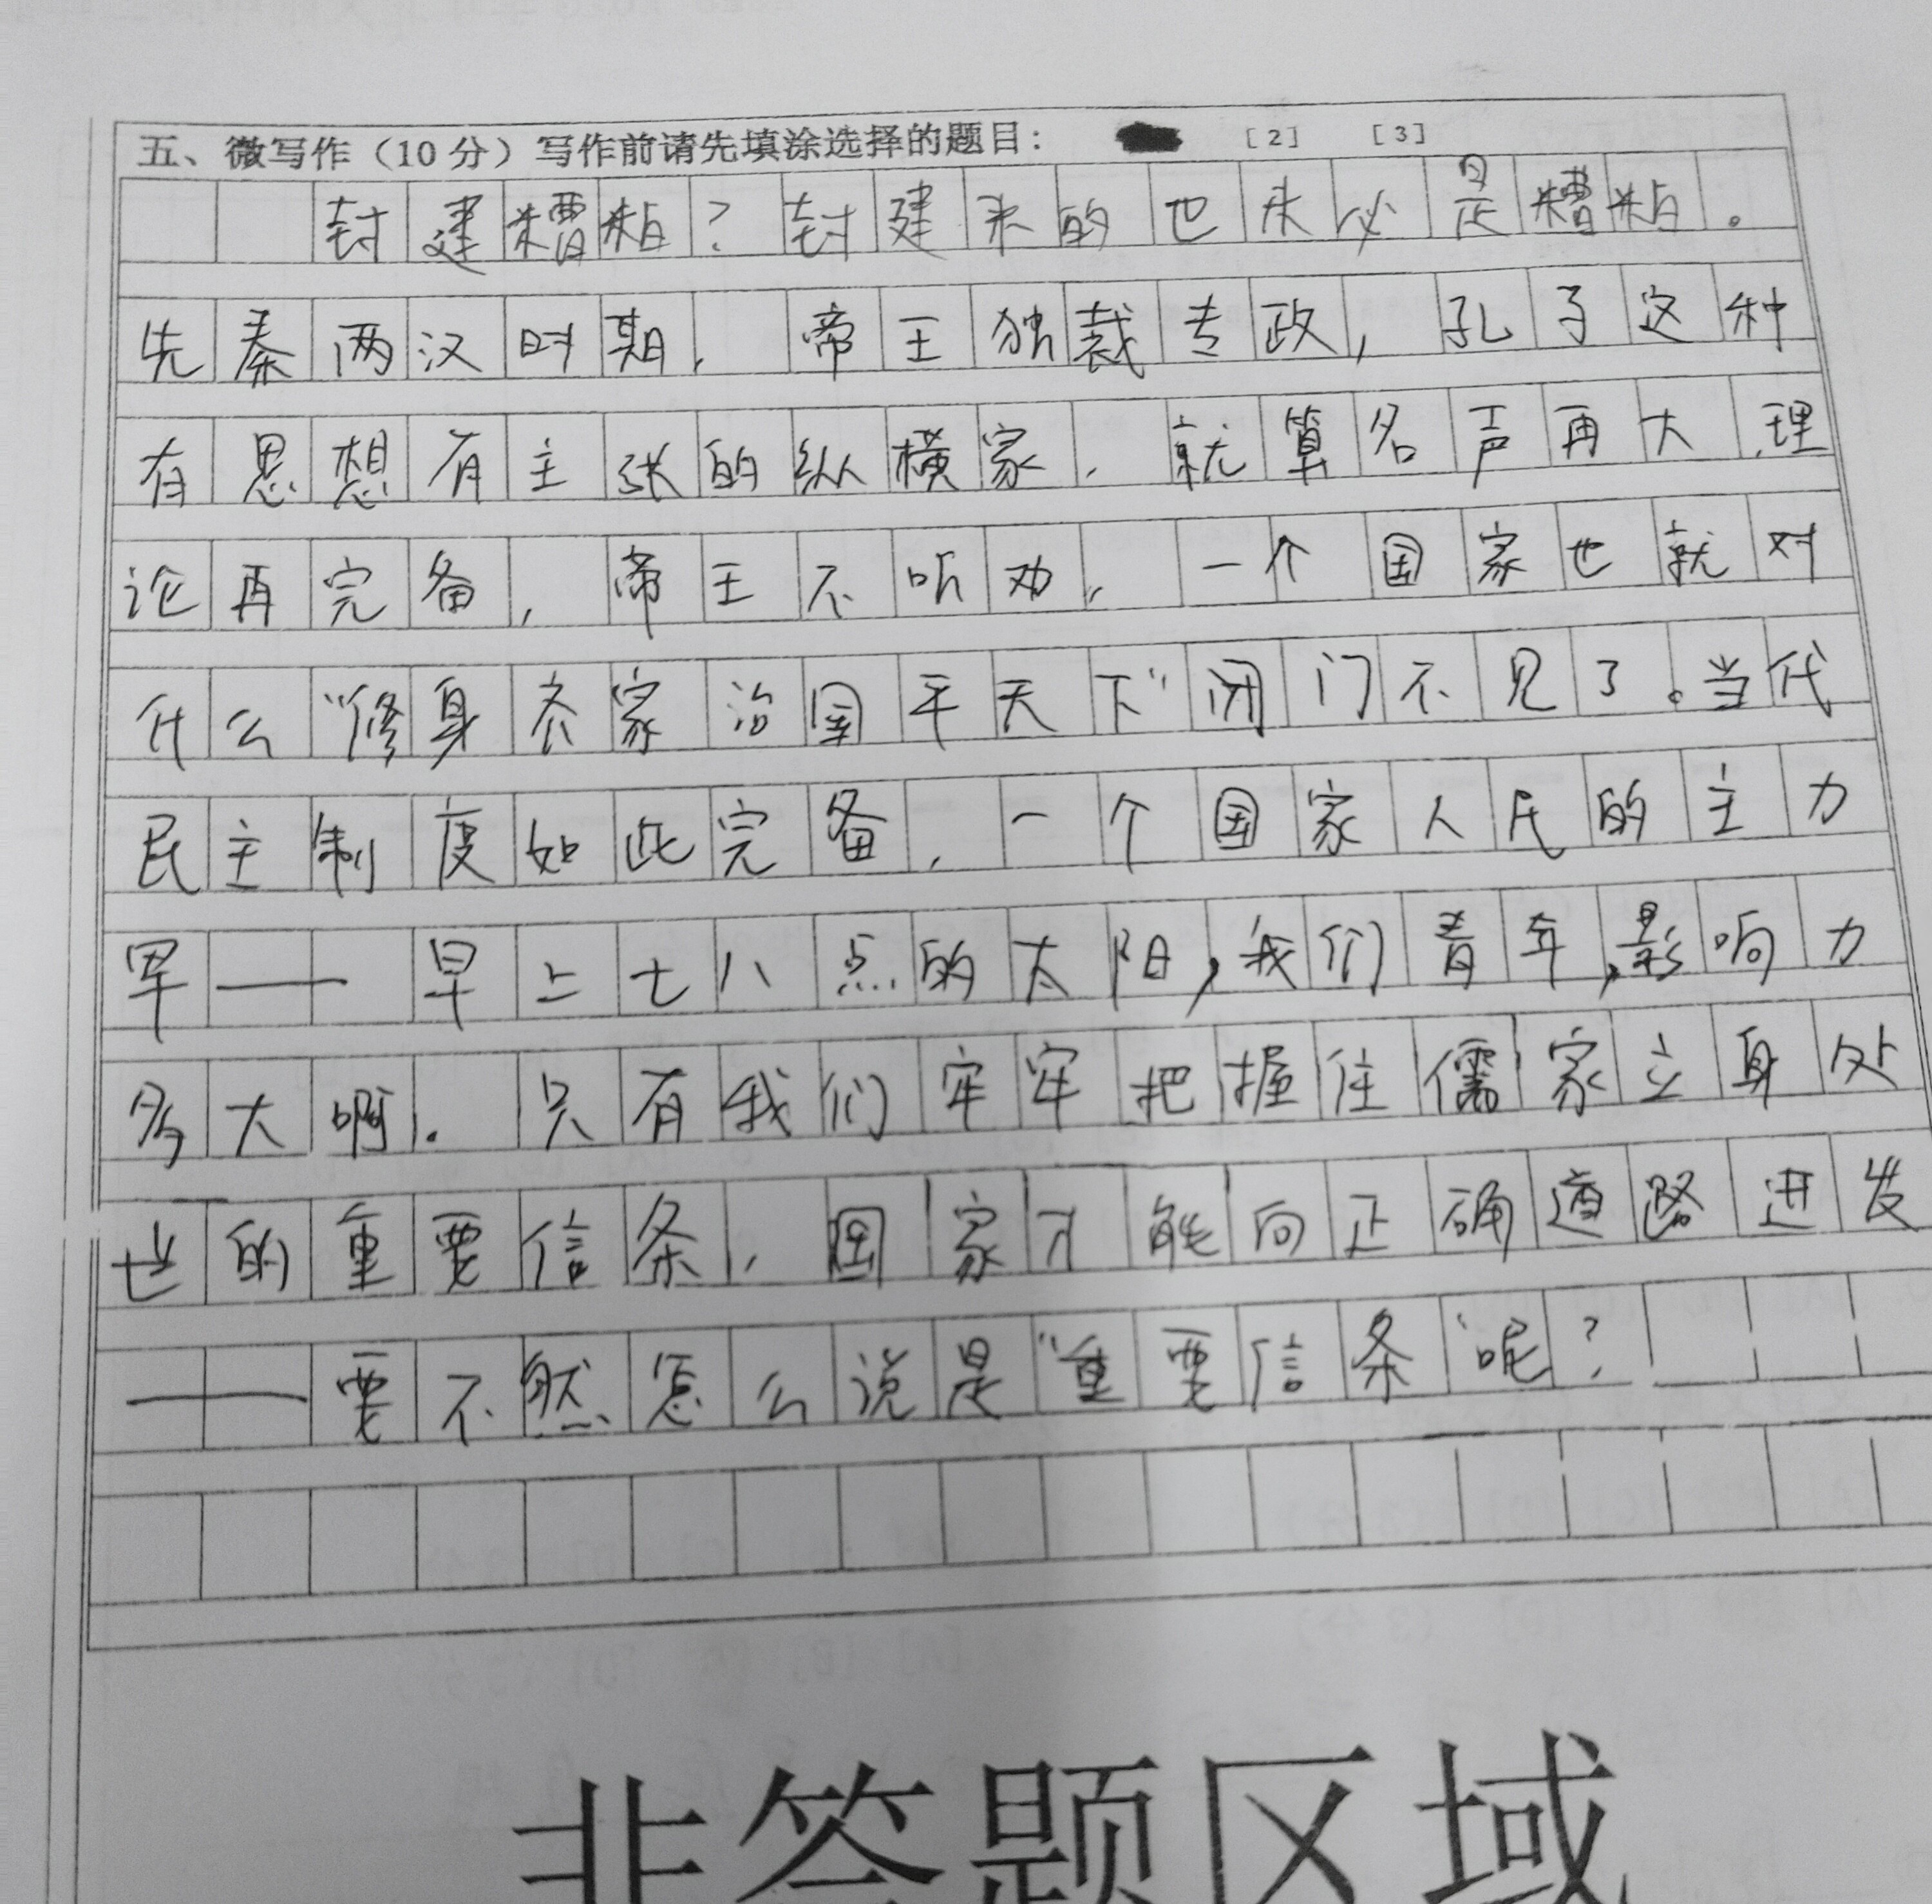 五、微写作（10 分）写作前请先填涂选择的题目： [2] [3]
封建糟粕？封建来的也未必是糟粕。
先秦两汉时期，帝王独裁专政，孔子这种
有思想有主张的纵横家，就算名声再大，理
论再完备，帝王不听劝，一个国家也就对
什么“修身齐家治国平天下”闭门不见了。当代
民主制度如此完备，一个国家人民的主力
军——早上七八点的太阳，我们青年，影响力
多大啊。只有我们牢牢把握住儒家立身处
世的重要信条，国家才能向正确道路进发
——要不然怎么说是“重要信条”呢？
非答题区域